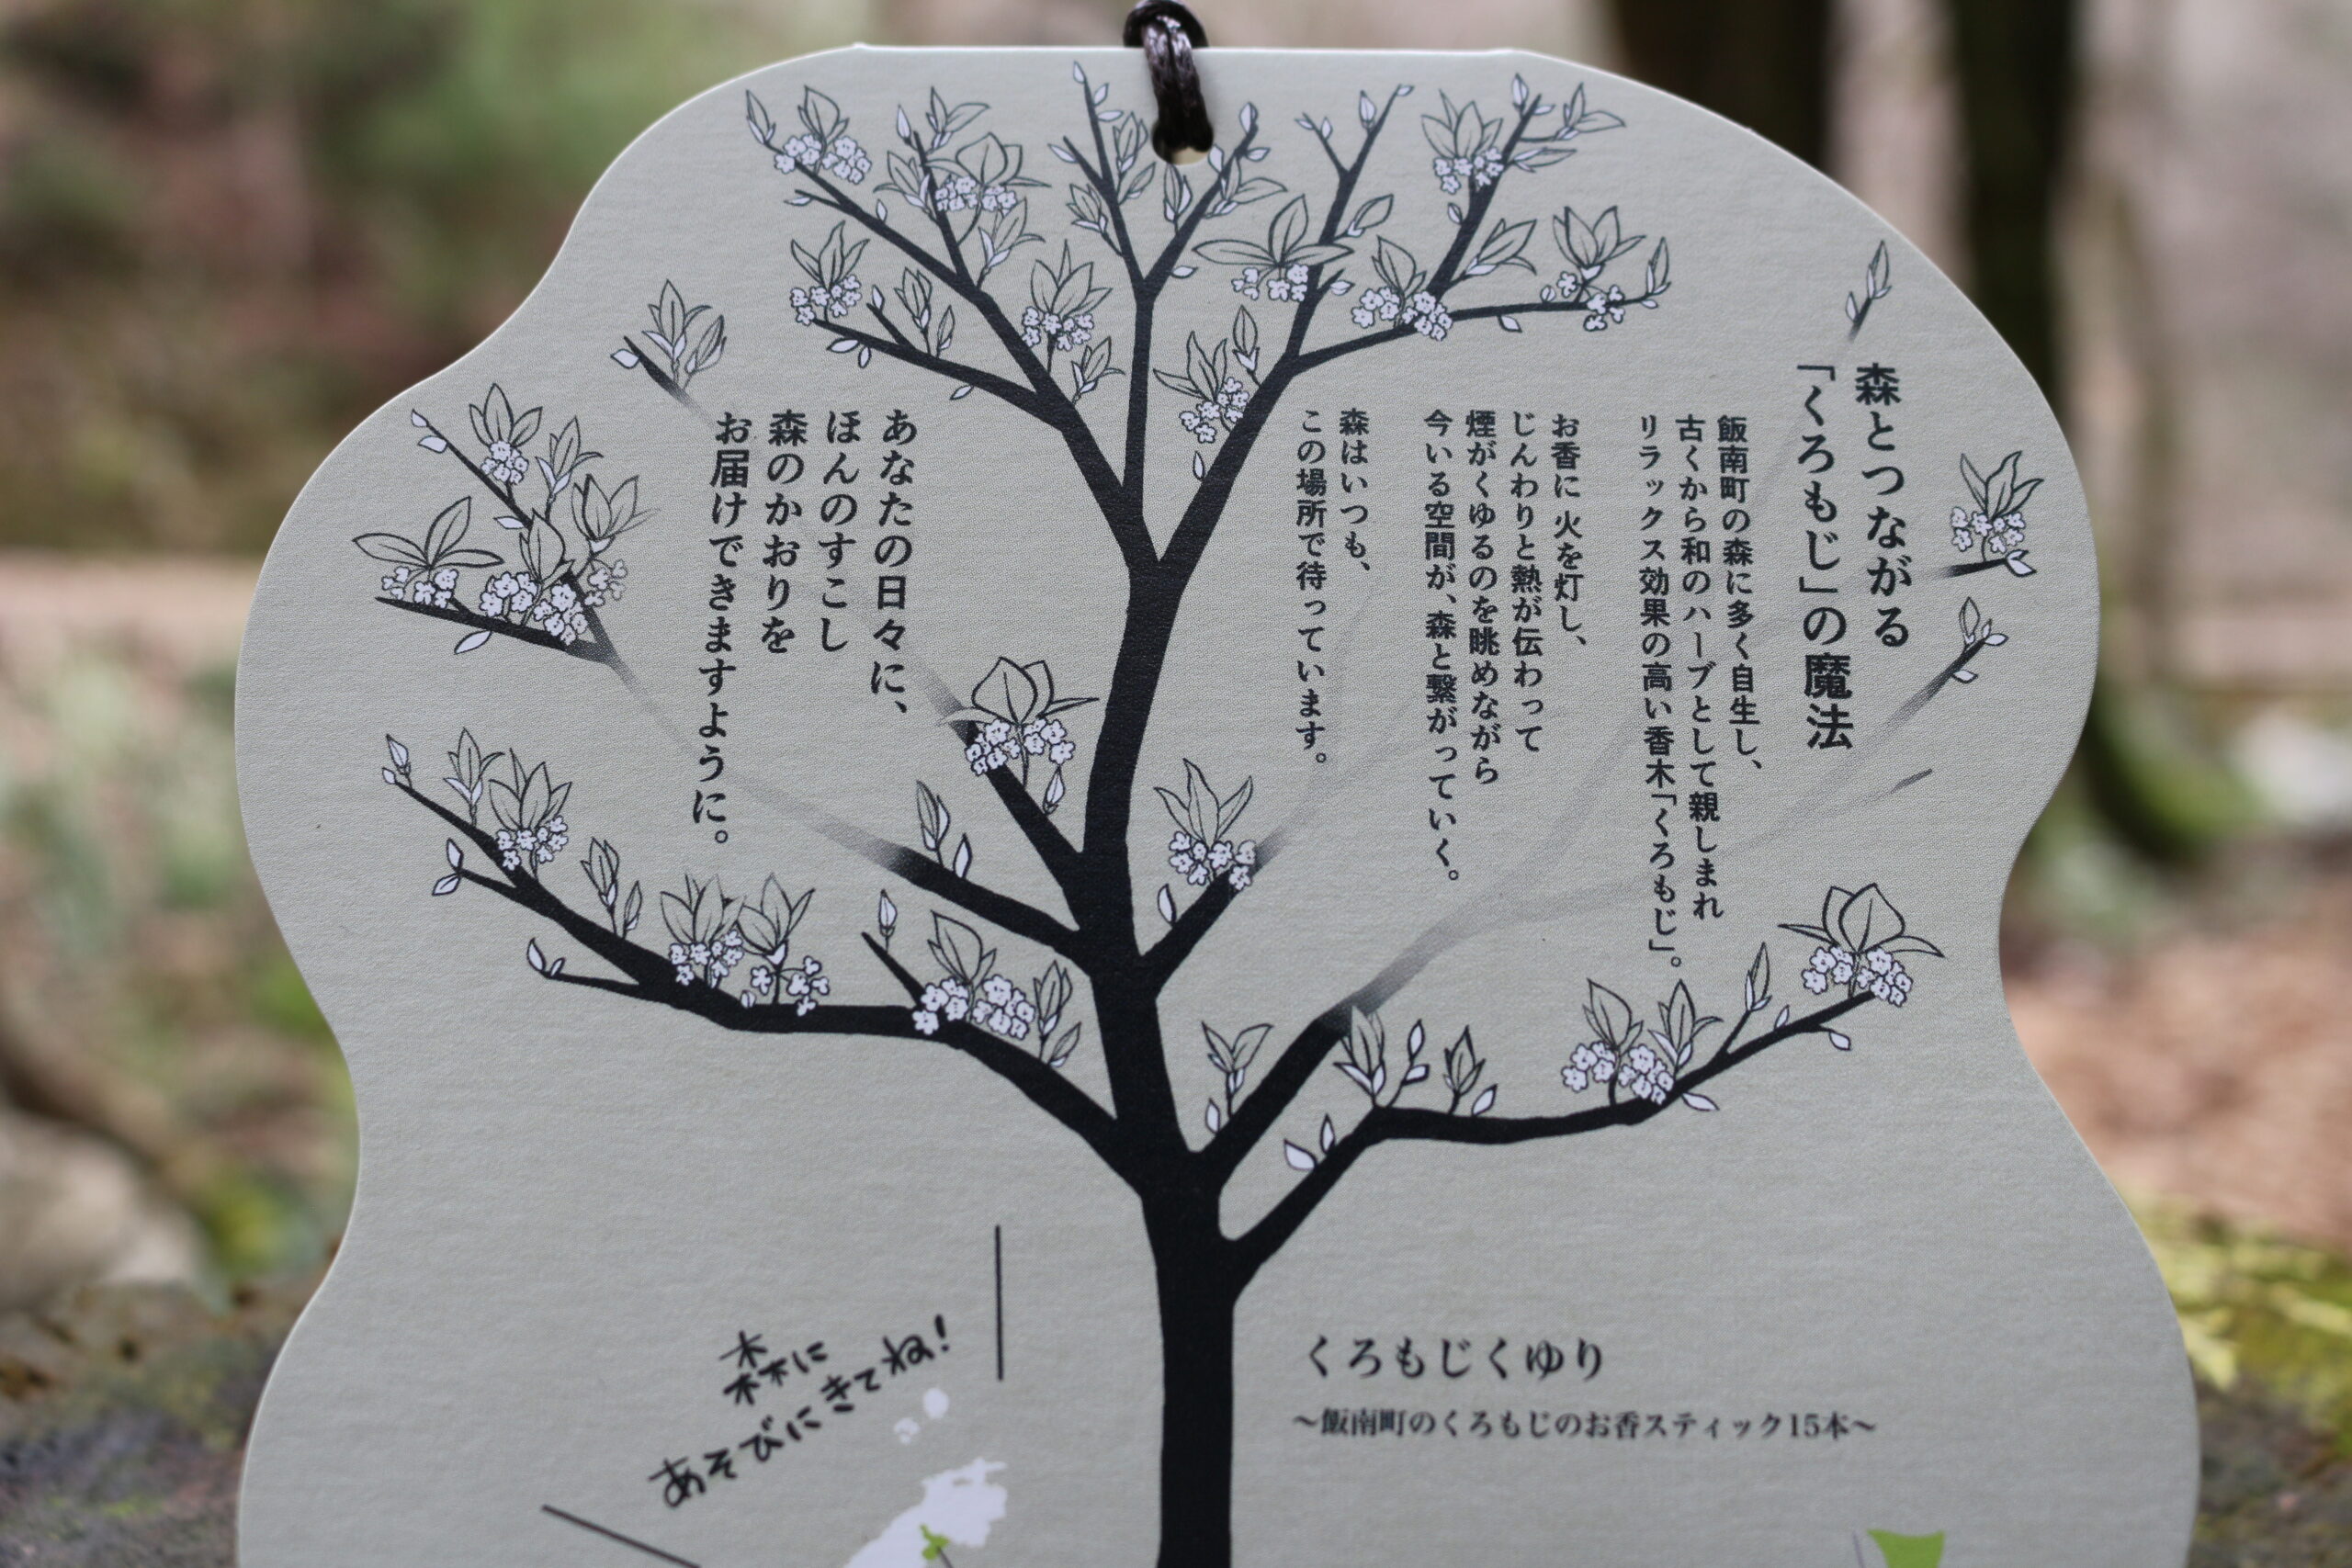 森とつながる
「くろもじ」の魔法
飯南町の森に多く自生し、
古くから和のハーブとして親しまれ
リラックス効果の高い香木「くろもじ」。
お香に 火を灯し、
じんわりと熱が伝わって
煙がくゆるのを眺めながら
今いる空間が、森と繋がっていく。
森はいつも、
この場所で待っています。
あなたの日々に、
ほんのすこし
森のかおりを
お届けできますように。
森に
あそびにきてね!
くろもじくゆり
〜飯南町のくろもじのお香スティック15本〜